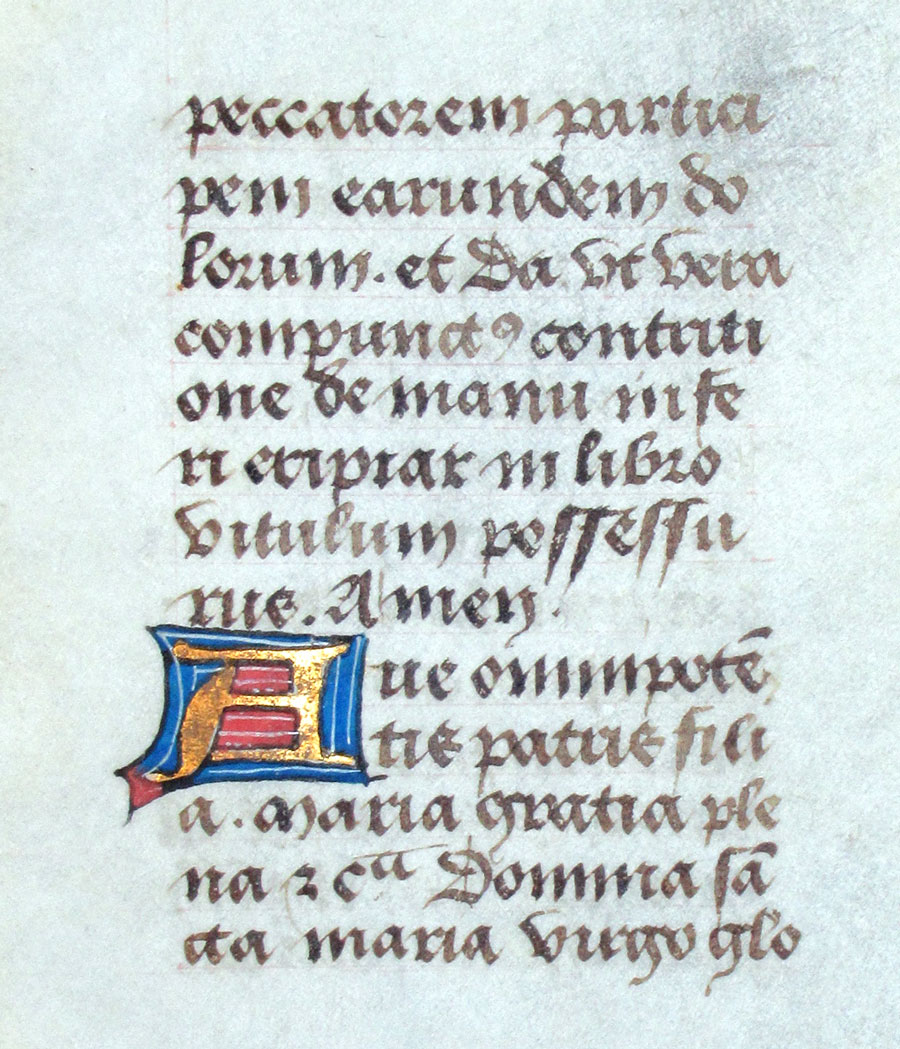 peccatorem partici
pem earundem do
lorum. et Da vt vera
compunctꝰ contriti
one de manu infe
ri eripiar in libro
vitulum possessu
rus. Amen.
Aue omnipotē
tis patris fili
a. maria gratia ple
na ⁊ cᵃ Domina sā
cta maria virgo glo